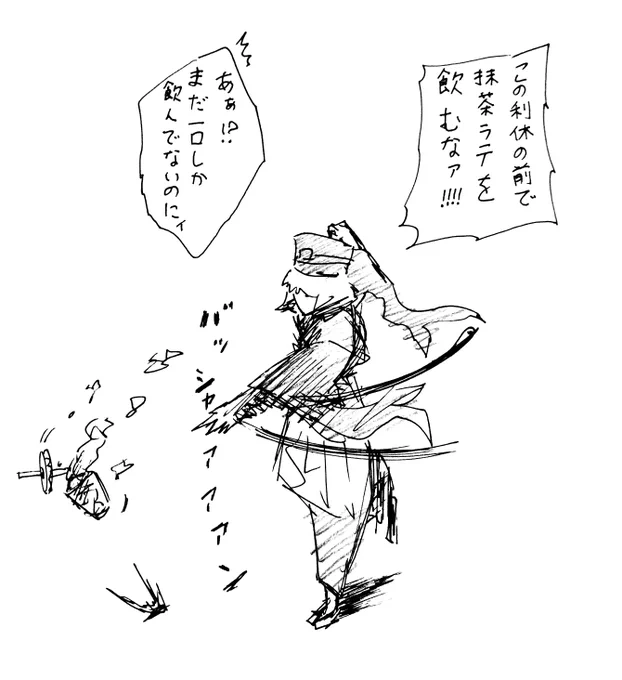 この利休の前で
抹茶ラテを
飲むなァ!!!!
あぁ!?
まだ一口しか
飲んでないのにィ
バッシャアアアン